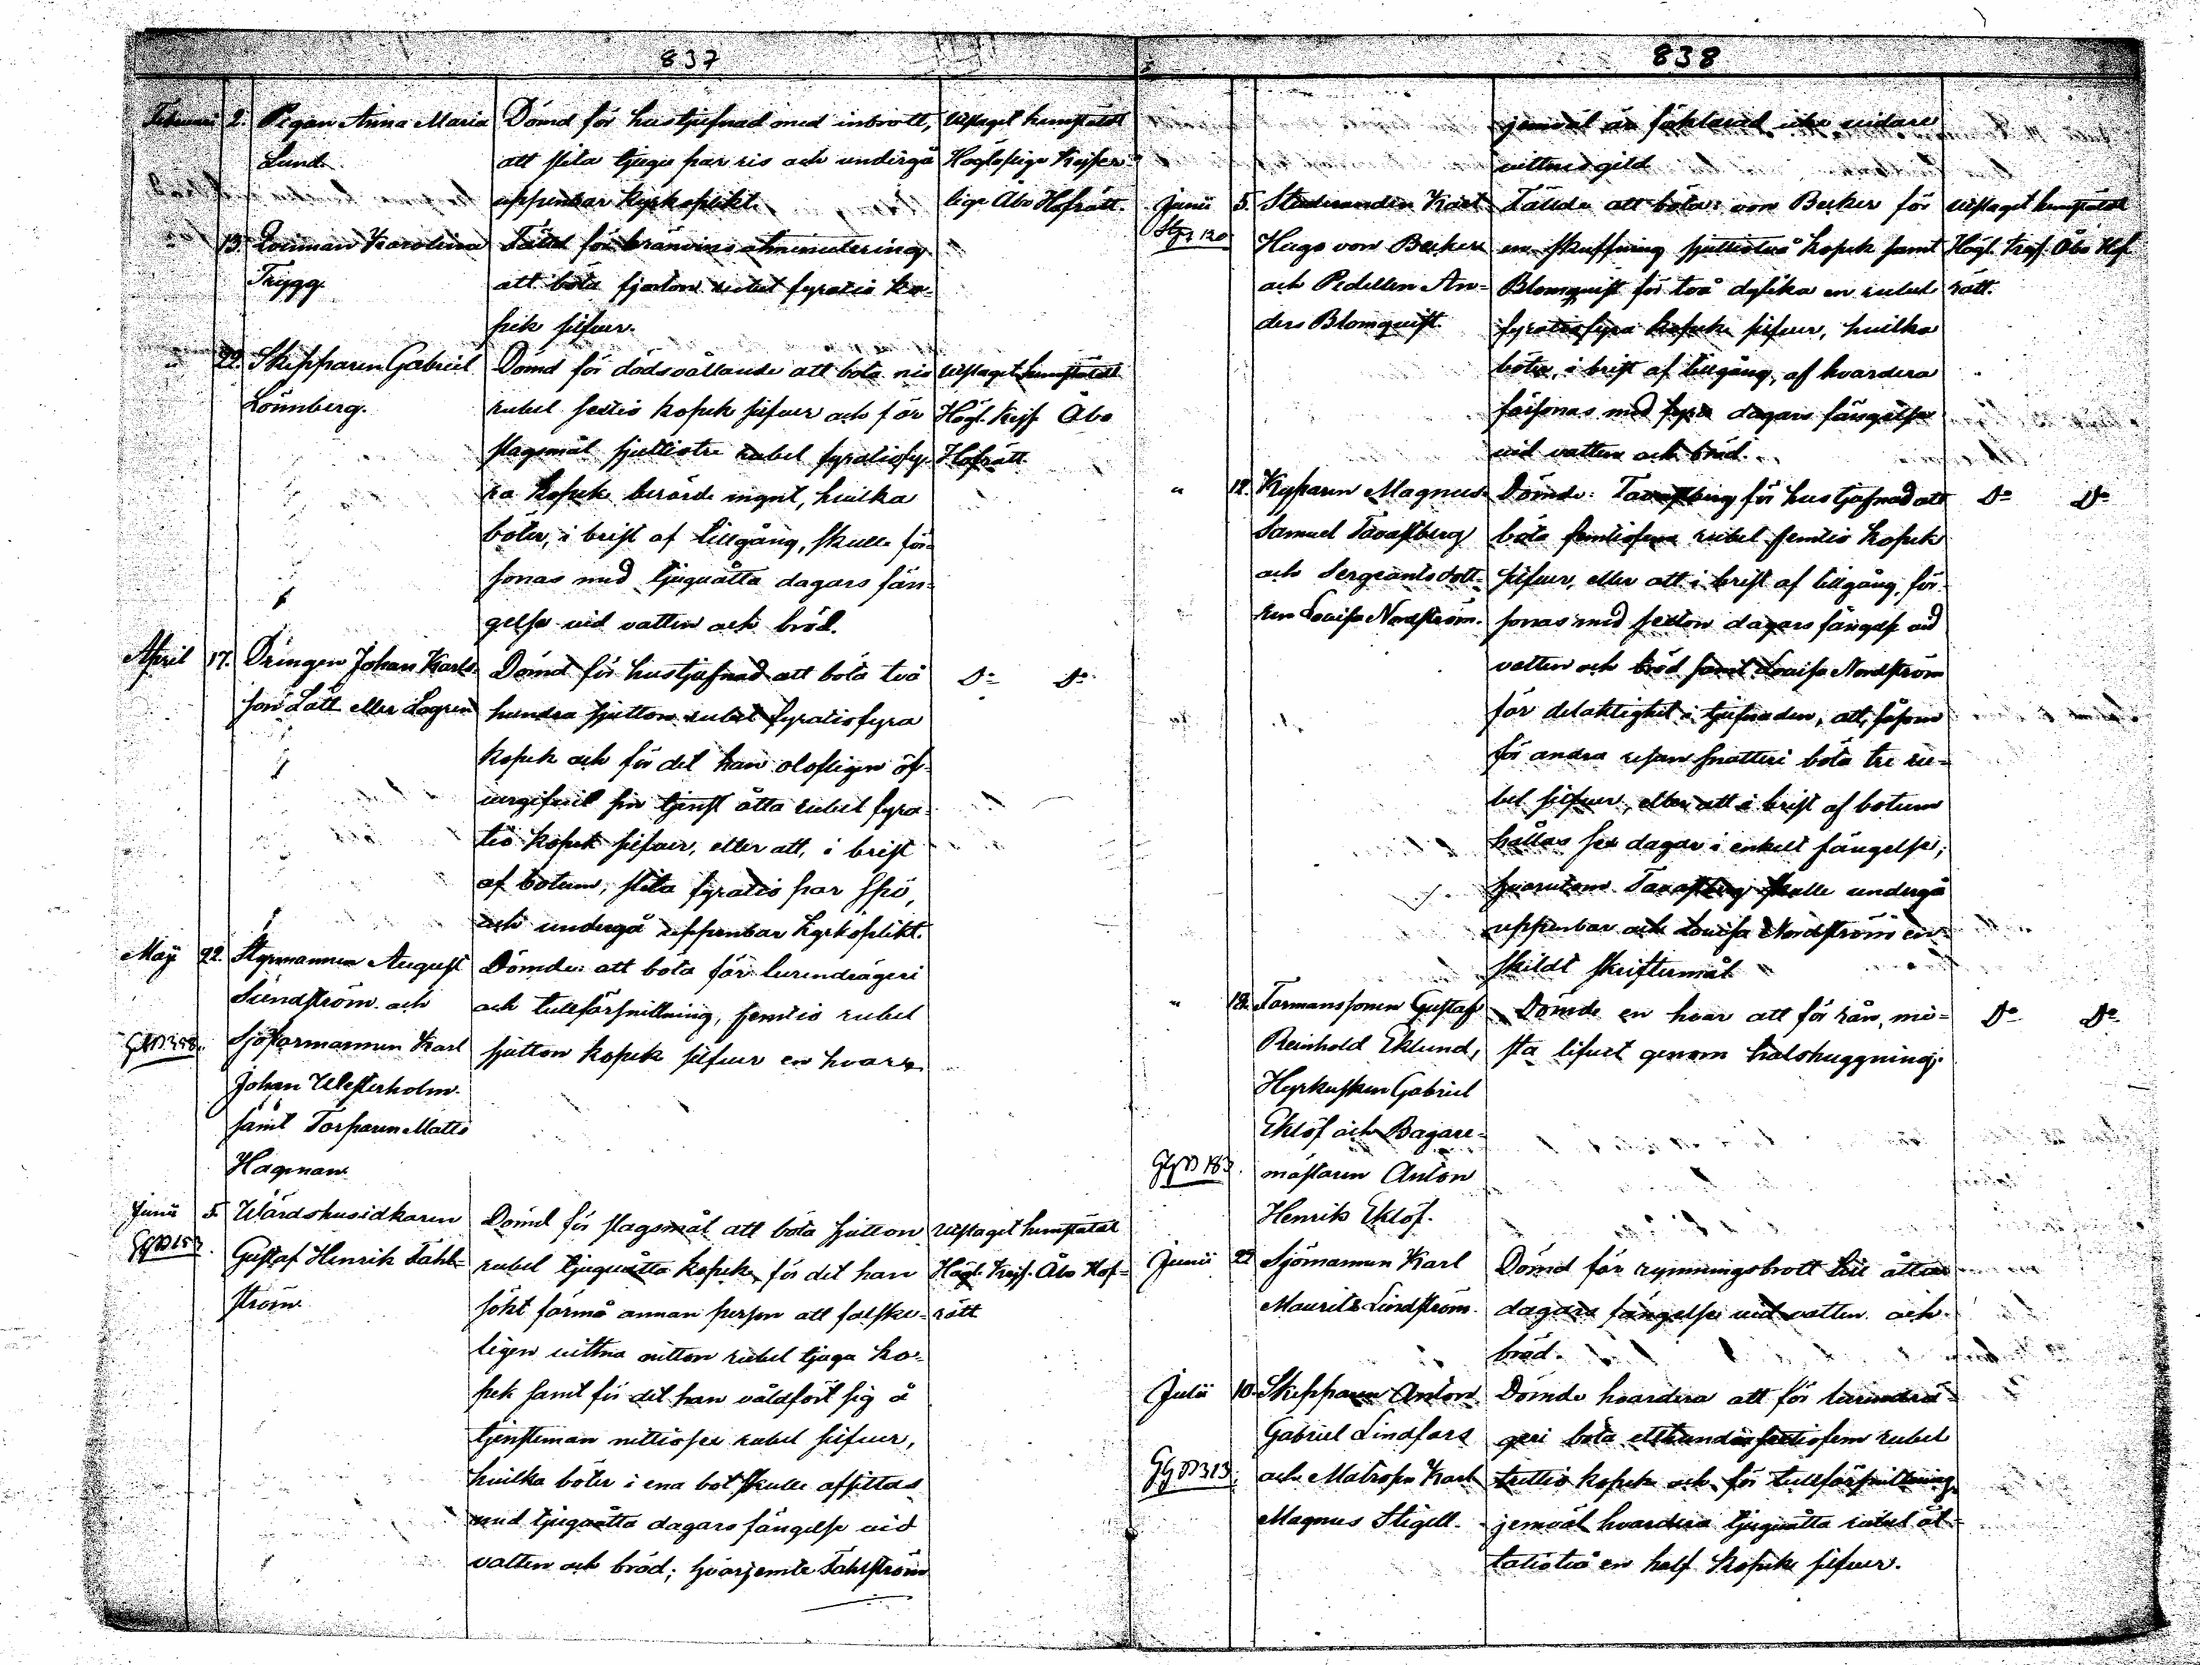 837
Februari 2. Pigan Anna Maria
Lund.
Dömd för hustjufnad med inbrott,
att slita tjugu par ris och undergå
uppenbar kyrkoplikt.
Utslaget hemstäldt
Högloflige Kejser-
lige Åbo Hofrätt.
13. Karolina
Trygg.
Fälld för bränvins
att böta fjorton rubel fyratio ko-
pek silfver.
" 22. Skepparen Gabriel
Lönnberg.
Dömd för dödsvållande att böta nio
rubel sextio kopek silfver och för
slagsmål sjuttiotre rubel fyratiofy-
ra kopek berörde mynt, hvilka
böter, i brist af tillgång, skulle för-
sonas med tjuguåtta dagars fän-
gelse vid vatten och bröd.
Utslaget hemstäldt
Högl. Kejs. Åbo
Hofrätt.
April 17. Drängen Johan Karls-
son Lätt eller Lagren
Dömd för hustjufnad att böta två
hundra sjutton rubel fyratiofyra
kopek och för det han olofligen öf-
vergifvit sin tjenst åtta rubel fyra-
tio kopek silfver, eller att, i brist
af botum, slita fyratio par spö,
och undergå uppenbar kyrkoplikt.
Do Do
Maji 22. Styrmannen August
Sundström och
Sjöfarmannen Karl
Johan Westerholm
samt Torparen Matts
Hagman.
Dömde att böta för lurendrägeri
och tullförsnillning, femtio rubel
sjutton kopek silfver en hvar.
Junii 5. Wärdshusidkaren
Gustaf Henrik Fahl-
ström.
Dömd för slagsmål att böta sjutton
rubel tjuguåtta kopek, för det han
sökt förmå annan person att falske-
ligen vittna nitton rubel tjugu ko-
pek samt för det han våldfört sig å
tjensteman nittiosex rubel silfver,
hvilka böter i ena bot skulle afsittas
med tjuguåtta dagars fängelse vid
vatten och bröd; hvarjemte Fahlström
Utslaget hemstäldt
Högl. Kejs. Åbo Hof-
rätt
838
jemväl är förklarad icke vidare
vittnesgild
Junii 5. Studeranden Karl
Hugo von Becker
och Pedellen An-
ders Blomquist.
Fällde att böta: von Becker för
en skuffning sjuttiotvå kopek samt
Blomquist för två dylika en rubel
fyratiofyra kopek silfver, hvilka
böter, i brist af tillgång, af hvardera
försonas med fyra dagars fängelse
vid vatten och bröd.
Utslaget hemstäldt
Högl. Kejs. Åbo Hof-
rätt.
" 12. Kyparen Magnus
Samuel Tavastberg
och Sergeantsdott-
ren Lovisa Nordström.
Dömde: Tavastberg för hustjufnad att
böta femtiofem rubel femtio kopek
silfver, eller att i brist af tillgång, för-
sonas med sexton dagars fängelse vid
vatten och bröd samt Lovisa Nordström
för delaktighet i tjufnaden, att, såsom
för andra resan snatteri böta tre ru-
bel silfver, eller att i brist af botum
hållas sex dagar i enkelt fängelse;
hvarutom Tavastberg skulle undergå
uppenbar och Lovisa Nordström en-
skildt skriftermål
Do Do
" 18. Formanssonen Gustaf
Reinhold Eklund,
Hyrkusken Gabriel
Eklöf och Bagare-
mästaren Anton
Henrik Eklöf.
Dömde en hvar att för rån, mi-
sta lifvet genom halshuggning.
Do Do
Junii 22 Sjömannen Karl
Maurits Lindström.
Dömd för rymningsbrott till åtta
dagars fängelse vid vatten och
bröd.
Julii 10. Skepparen Anton
Gabriel Lindfors
och Matrosen Karl
Magnus Stigell.
Dömde hvardera att för lurendrä-
geri böta etthundrasextiofem rubel
trettio kopek och för tullförsnillning
jemväl hvardera tjuguåtta rubel åt-
tatiotvå en half kopek silfver.